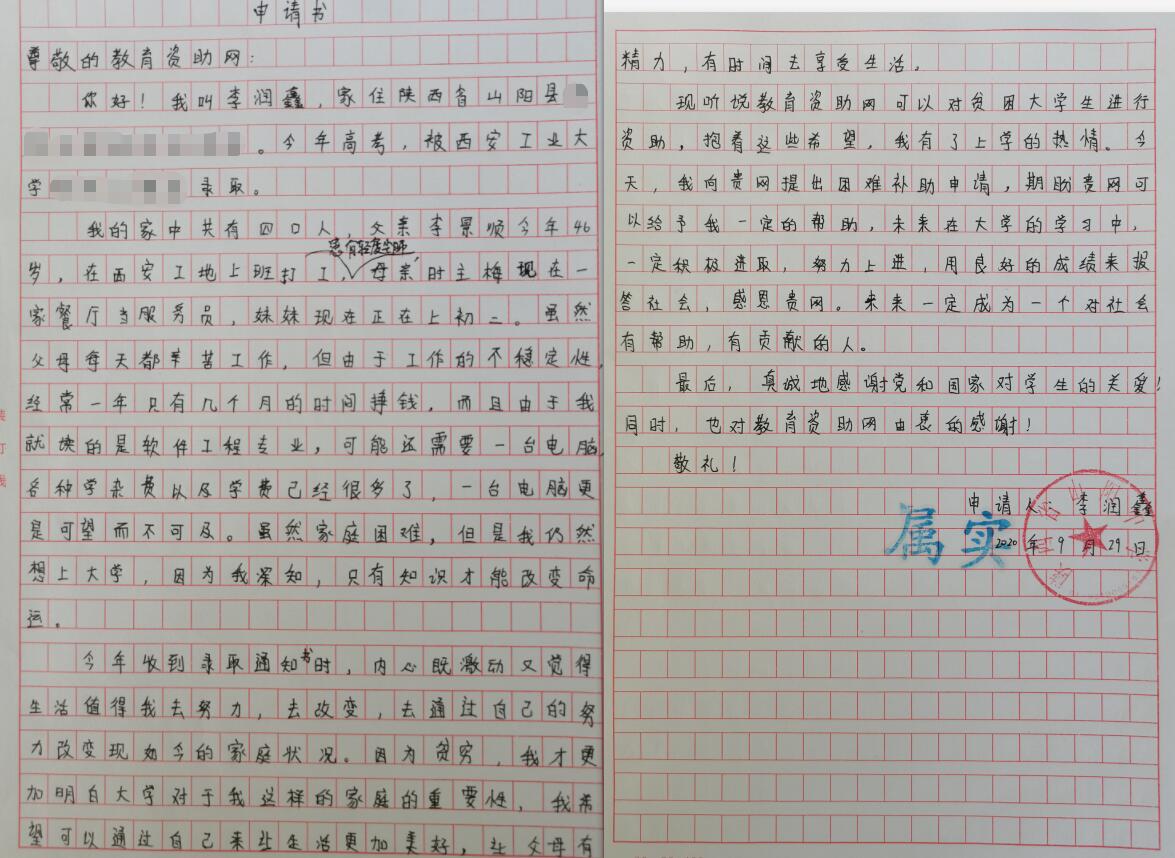 申请书
尊敬的教育资助网：
你好！我叫李润鑫，家住陕西省山阳县
。今年高考，被西安工业大
学 录取。
我的家中共有四口人，父亲李景顺今年46
患有轻度尘肺，
岁，在西安工地上班打工，母亲时主梅现在一
家餐厅当服务员，妹妹现在正在上初二。虽然
父母每天都辛苦工作，但由于工作的不稳定性，
经常一年只有几个月的时间挣钱，而且由于我
就读的是软件工程专业，可能还需要一台电脑，
各种学杂费以及学费已经很多了，一台电脑更
是可望而不可及。虽然家庭困难，但是我仍然
想上大学，因为我深知，只有知识才能改变命
运。
今年收到录取通知书时，内心既激动又觉得
生活值得我去努力，去改变，去通过自己的努
力改变现如今的家庭状况。因为贫穷，我才更
加明白大学对于我这样的家庭的重要性，我希
望可以通过自己来让生活更加美好，让父母有
装
订
线
精力，有时间去享受生活。
现听说教育资助网可以对贫困大学生进行
资助，抱着这些希望，我有了上学的热情。今
天，我向贵网提出困难补助申请，期盼贵网可
以给予我一定的帮助，未来在大学的学习中，
一定积极进取，努力上进，用良好的成绩来报
答社会，感恩贵网。未来一定成为一个对社会
有帮助，有贡献的人。
最后，真诚地感谢党和国家对学生的关爱！
同时，也对教育资助网由衷的感谢！
敬礼！
申请人：李润鑫
属实
2020年9月29日